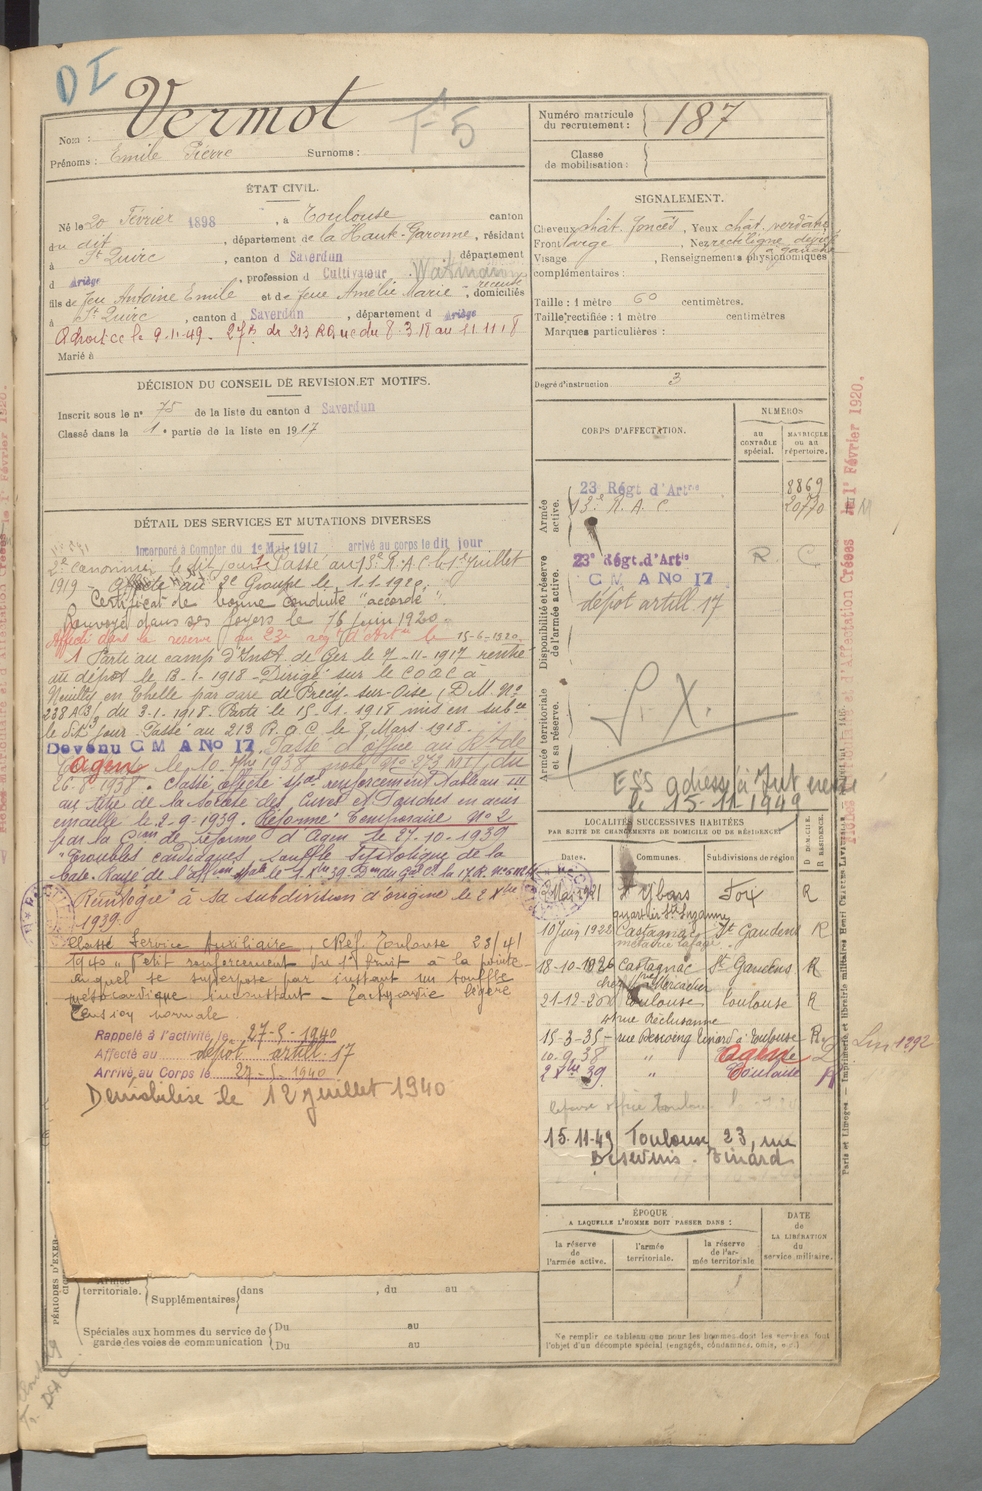 DI
Nom : Vermot
F5
Prénoms : Emile Pierre Surnoms :
Numéro matricule
du recrutement : 187
Classe
de mobilisation :
ÉTAT CIVIL.
Né le 20 Février 1898, à Toulouse canton
du dit, département de la Haute-Garonne, résidant
à St Quirc, canton d Saverdun département
d Ariège, profession d Cultivateur
fils de feu Antoine Emile et de feue Amélie Marie, domiciliés
à St Quirc, canton d Saverdun, département d Ariège
A droit ce le 9.11.49. du 8.3.18 au 11.11.18
Marié à
SIGNALEMENT.
Cheveux chât. foncés, Yeux chât. verdâtre
Front large, Nez rectiligne dévié
à gauche
Visage, Renseignements physionomiques
complémentaires :
Taille : 1 mètre 60 centimètres.
Taille rectifiée : 1 mètre centimètres
Marques particulières :
Degré d'instruction 3
DÉCISION DU CONSEIL DE REVISION ET MOTIFS.
Inscrit sous le n° 75 de la liste du canton d Saverdun
Classé dans la 1e partie de la liste en 1917
CORPS D'AFFECTATION.
NUMÉROS
au
CONTRÔLE
spécial.
MATRICULE
ou au
répertoire.
Armée
active.
23 Régt d'Artie 8869
13e R.A.C. 20770
Disponibilité et réserve
de l'armée active.
23e Régt. d'Artie R. C
C M A No 17
dépôt artill. 17
Armée territoriale
et sa réserve.
S.X.
ESS adressé à
le 15-11-1949
DÉTAIL DES SERVICES ET MUTATIONS DIVERSES
Incorporé à Compter du 1e Mai 1917 arrivé au corps le dit jour
2e canonnier le dit jour. Passé au 13e R.A.C. le 1er Juillet
1919 - Affecté au 2e Groupe le 1.1.1920.
Certificat de bonne conduite "accordé".
Renvoyé dans ses foyers le 16 Juin 1920.
Affecté dans la réserve au 23e rég d'Artie le 15-6-1920
1 Parti au camp d'Inst. de Ger le 7-11-1917 rentré
au dépôt le 13-1-1918 - Dirigé sur le COAC à
Neuilly en Thelle par gare de Précy-sur-Oise (D.M. No
238 A(3) du 3-1-1918. Parti le 15-1-1918 mis en subce
le dit jour. Passé au 213 R.A.C. le 8 Mars 1918.
Devenu C M A No 17. Passé d'office au Rt de
Agen le 10. 1938 No 273 MI/ du
26-8-1938. Classé affecté spal renforcement Tableau III
au titre de la Société des Cuirs et Touches
le 2-9-1939. Réformé temporaire No 2
par la Cion de réforme d'Agen le 27-10-1939
"Troubles cardiaques, souffle systolique de la
base. Rayé de l'affion spale le
Réintégré à sa subdivision d'origine le 2 Xbre
1939.
Classé Service Auxiliaire, CRéf. Toulouse 23/4/
1940 "Petit renforcement du 1er bruit à la pointe
auquel se superpose par instant un souffle
mésocardique inconstant - tachycardie légère
Tension normale.
Rappelé à l'activité le 27-5-1940
Affecté au dépôt artill. 17
Arrivé au Corps le 27-5-1940
Démobilisé le 12 juillet 1940
LOCALITÉS SUCCESSIVES HABITÉES
PAR SUITE DE CHANGEMENTS DE DOMICILE OU DE RÉSIDENCE
Dates. Communes. Subdivisions de région D. DOMICILE. R. RÉSIDENCE.
2 Mai 1921 St Ybars Foix R
10 Juin 1922 Castagnac St Gaudens R
18-10-1926 Castagnac St Gaudens R
21-12-20 Toulouse Toulouse R
rue Réclusanne
15-3-35 - rue Toulouse R
10.9.38 " Agen
2 Xbre 39 " Toulouse R
15.11.49 Toulouse 23, rue
Linard
ÉPOQUE
A LAQUELLE L'HOMME DOIT PASSER DANS :
la réserve
de
l'armée active.
l'armée
territoriale.
la réserve
de l'ar-
mée territoriale
DATE
de
LA LIBÉRATION
du
service militaire.
Ne remplir ce tableau que pour les hommes dont les services font
l'objet d'un décompte spécial (engagés, condamnés, omis, etc.)
PÉRIODES D'EXER-
Armée
territoriale.
Supplémentaires dans, du au
Spéciales aux hommes du service de
garde des voies de communication
Du au
Du au
Paris et Limoges. — Imprimerie et librairie militaires Henri Charles-Lavauzelle
d'Affectation Créées le 1er Février 1920.